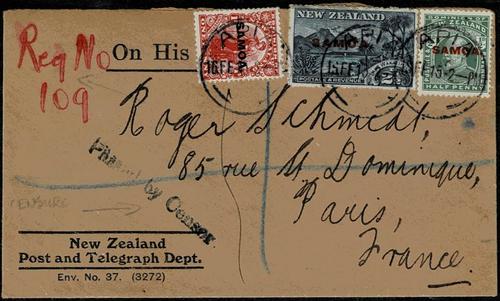 Reg No
109
On His
SAMOA.
NEW ZEALAND
SAMOA.
POSTAGE & REVENUE
SAMOA.
HALF PENNY
APIA
Roger Schmidt,
85 rue St Dominique,
Paris,
France.
Passed by Censor.
CENSURE
New Zealand
Post and Telegraph Dept.
Env. No. 37. (3272)